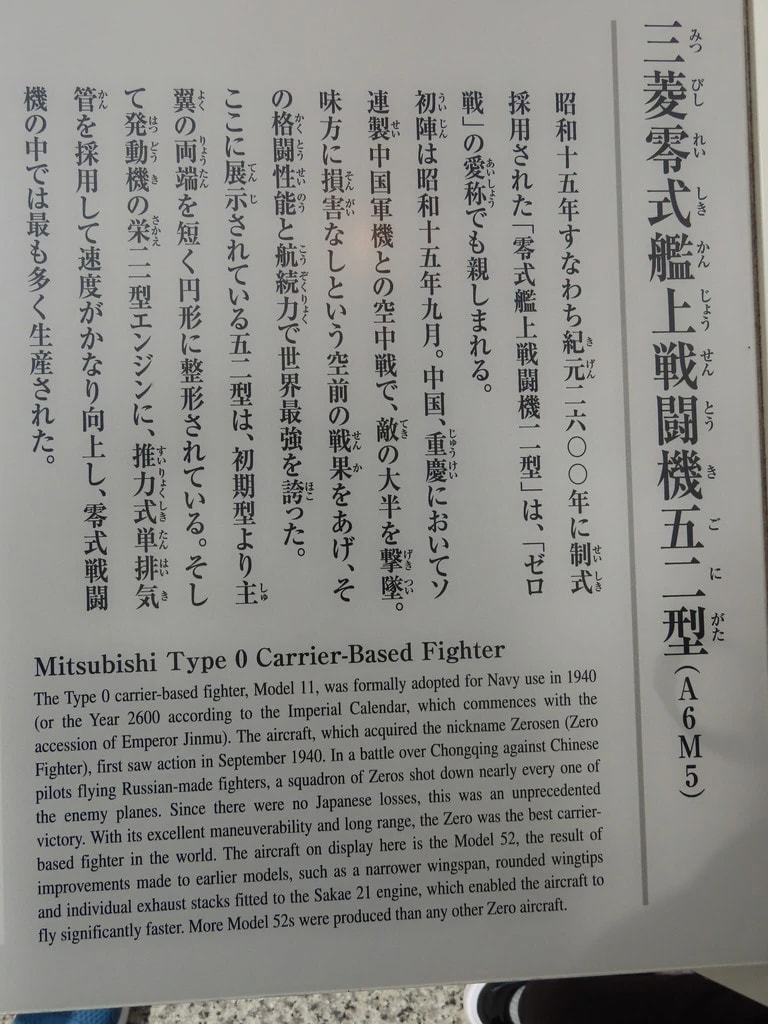 三菱零式艦上戦闘機五二型(A6M5)
昭和十五年すなわち紀元二六〇〇年に制式
採用された「零式艦上戦闘機一一型」は、「ゼロ
戦」の愛称でも親しまれる。
初陣は昭和十五年九月。中国、重慶においてソ
連製中国軍機との空中戦で、敵の大半を撃墜。
味方に損害なしという空前の戦果をあげ、そ
の格闘性能と航続力で世界最強を誇った。
ここに展示されている五二型は、初期型より主
翼の両端を短く円形に整形されている。そし
て発動機の栄二一型エンジンに、推力式単排気
管を採用して速度がかなり向上し、零式戦闘
機の中では最も多く生産された。
Mitsubishi Type 0 Carrier-Based Fighter
The Type 0 carrier-based fighter, Model 11, was formally adopted for Navy use in 1940
(or the Year 2600 according to the Imperial Calendar, which commences with the
accession of Emperor Jinmu). The aircraft, which acquired the nickname Zerosen (Zero
Fighter), first saw action in September 1940. In a battle over Chongqing against Chinese
pilots flying Russian-made fighters, a squadron of Zeros shot down nearly every one of
the enemy planes. Since there were no Japanese losses, this was an unprecedented
victory. With its excellent maneuverability and long range, the Zero was the best carrier-
based fighter in the world. The aircraft on display here is the Model 52, the result of
improvements made to earlier models, such as a narrower wingspan, rounded wingtips
and individual exhaust stacks fitted to the Sakae 21 engine, which enabled the aircraft to
fly significantly faster. More Model 52s were produced than any other Zero aircraft.